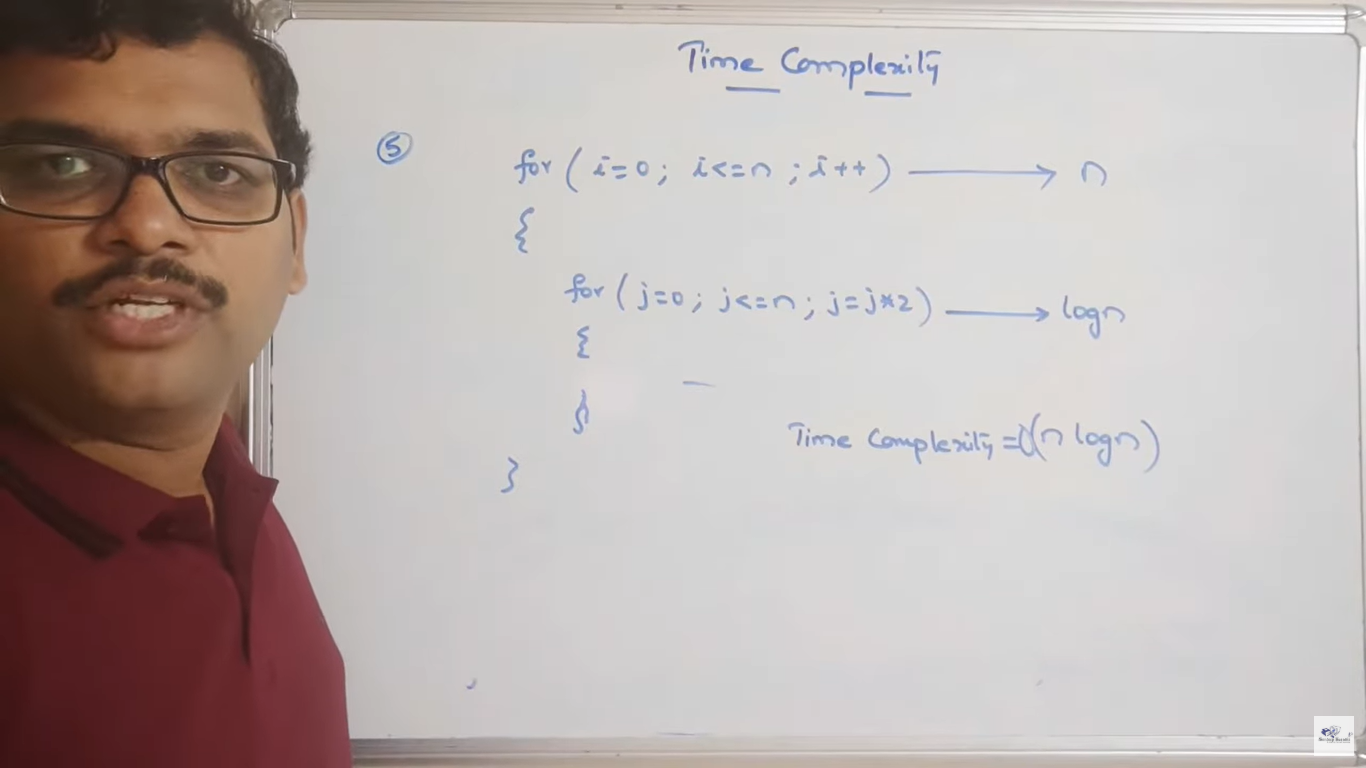 Time Complexity
⑤ for ( i=0; i<=n ; i++ ) → n
{
for ( j=0; j<=n ; j=j*2 ) → logn
{
}
Time Complexity = O(n logn)
}